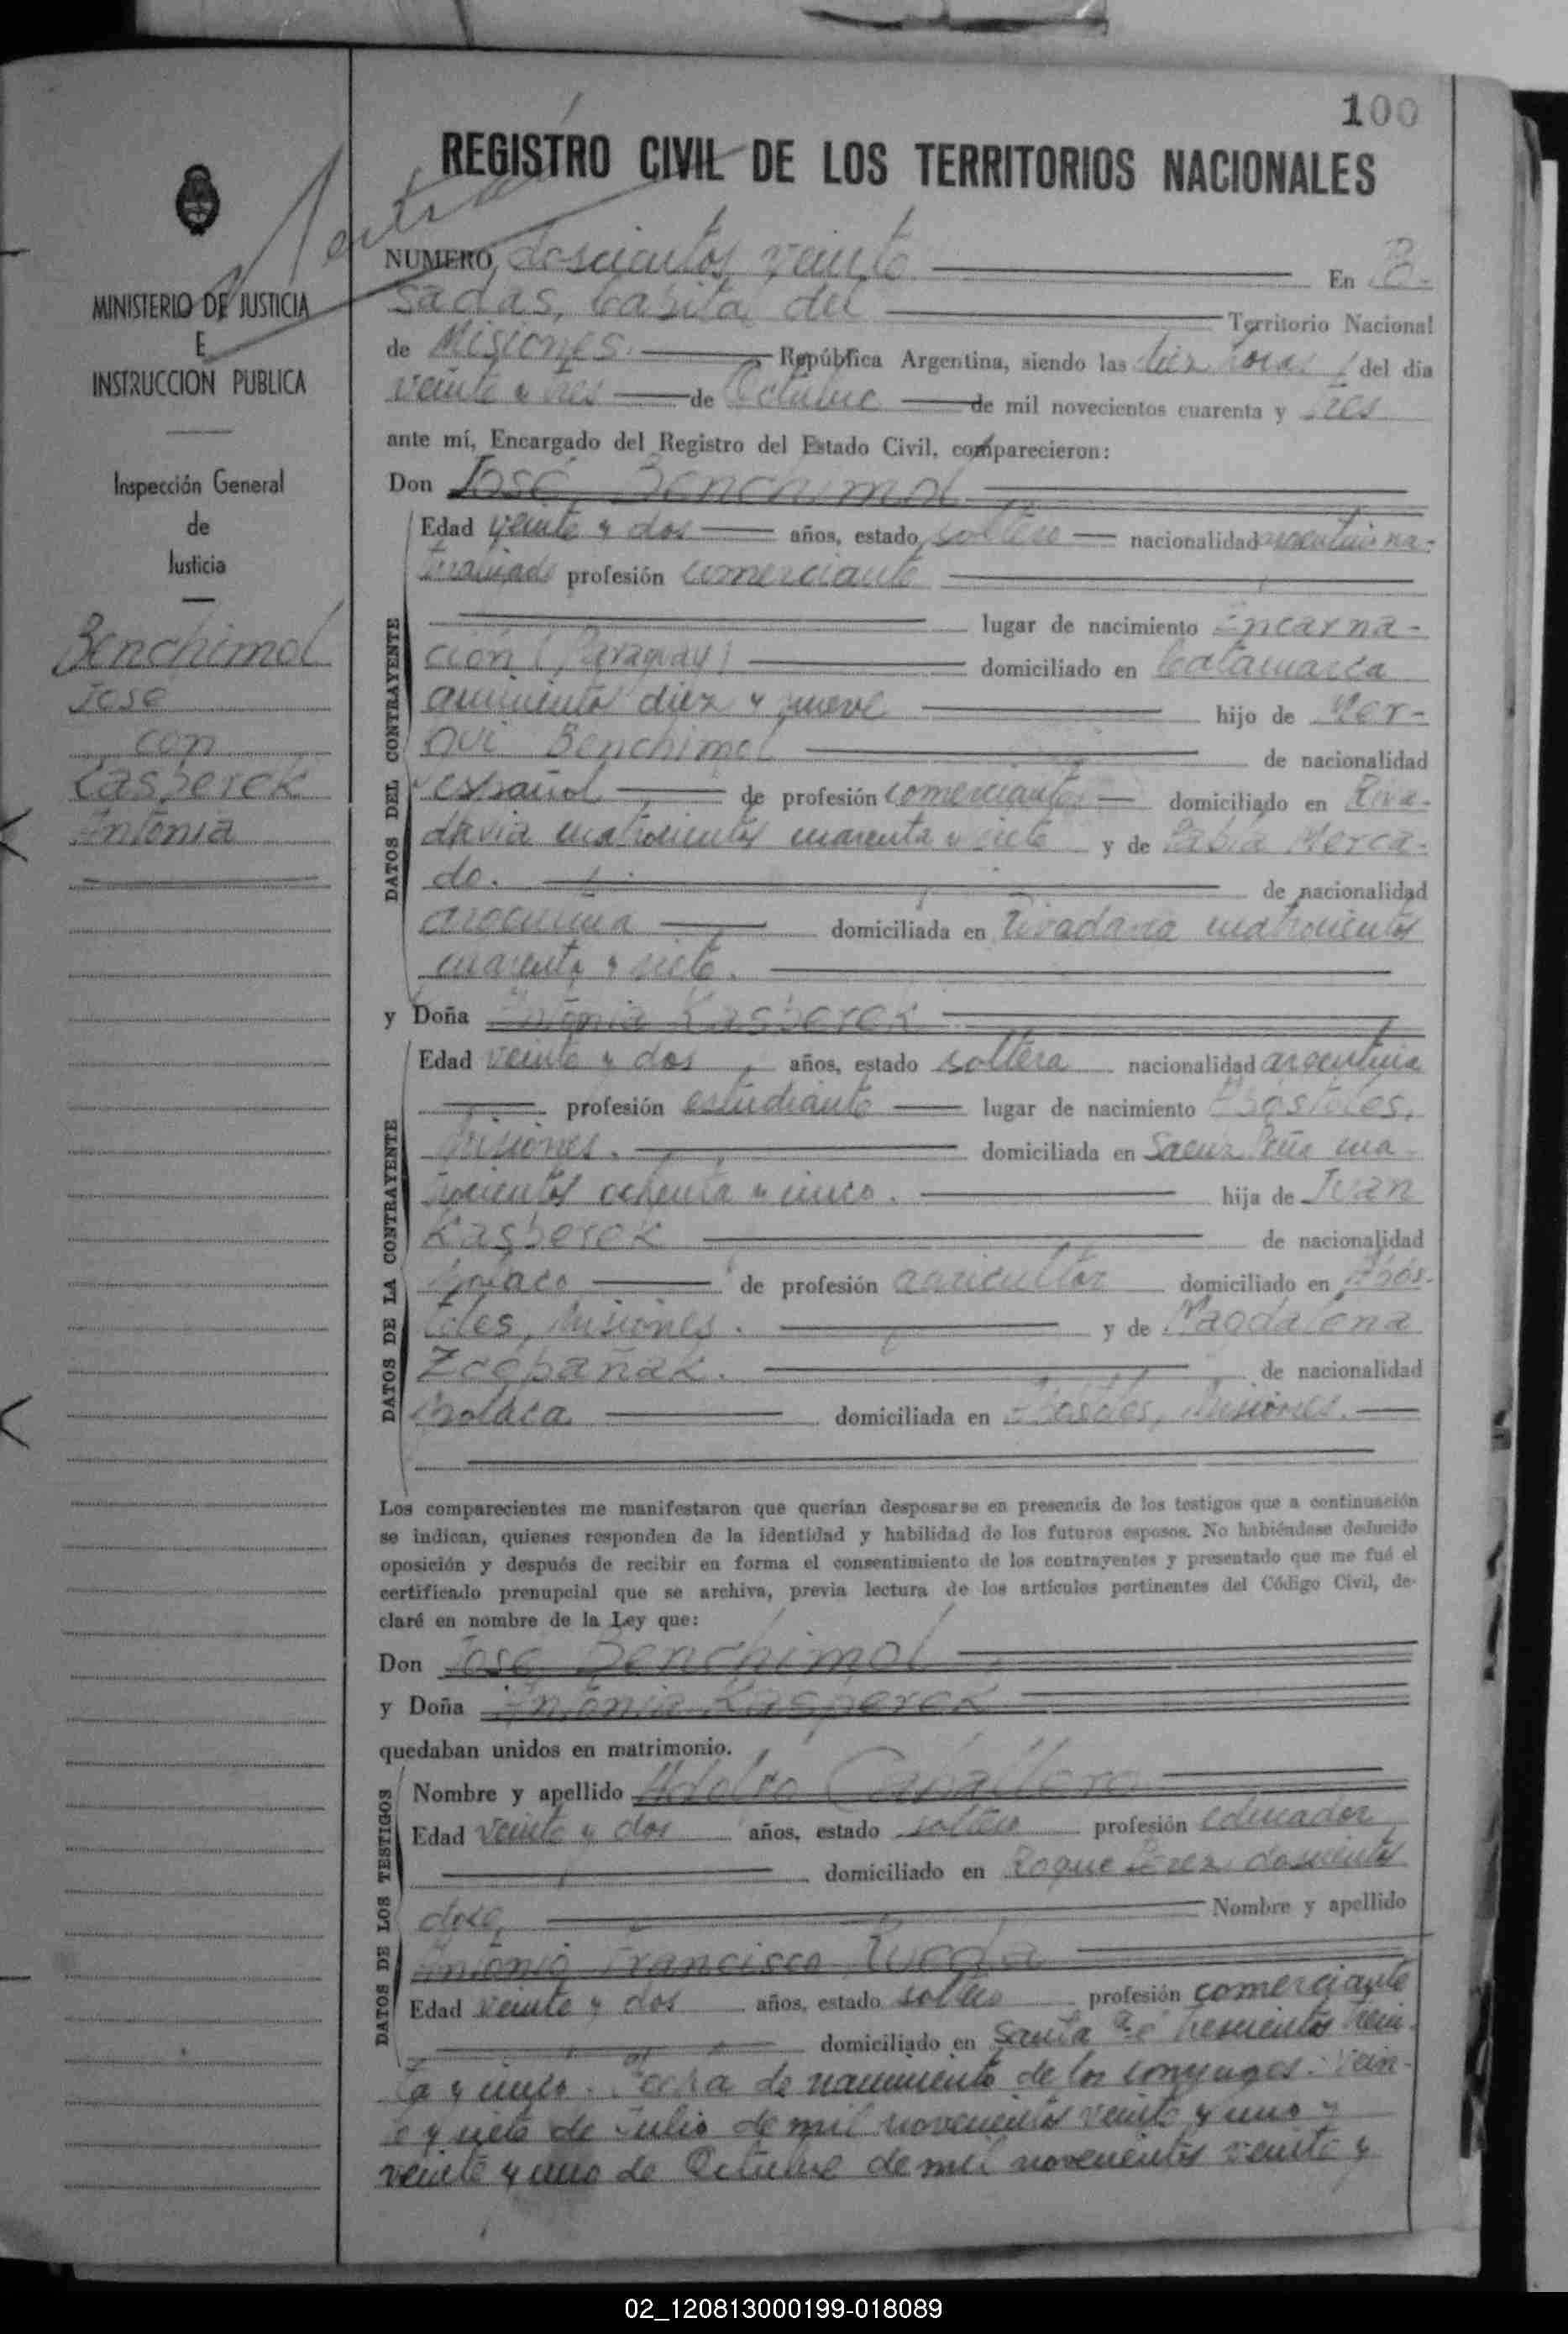 100
REGISTRO CIVIL DE LOS TERRITORIOS NACIONALES
MINISTERIO DE JUSTICIA
E
INSTRUCCION PUBLICA
Inspección General
de
Justicia
Benchimol
José
con
Kasperek
Antonia
NUMERO doscientos veinte En Po-
sadas, Capital del Territorio Nacional
de Misiones. República Argentina, siendo las diez horas del dia
veinte y tres de Octubre de mil novecientos cuarenta y tres
ante mí, Encargado del Registro del Estado Civil, comparecieron:
Don José Benchimol
Edad veinte y dos años, estado soltero nacionalidad argentino na-
profesión comerciante
lugar de nacimiento Encarna-
ción (Paraguay) domiciliado en Catamarca
quinientos diez y nueve hijo de
Benchimol de nacionalidad
español de profesión comerciante domiciliado en Riva-
davia cuatrocientos cuarenta y siete y de Merca-
do. de nacionalidad
argentina domiciliada en Rivadavia cuatrocientos
cuarenta y siete.
y Doña Antonia Kasperek
Edad veinte y dos años, estado soltera nacionalidad argentina
profesión estudiante lugar de nacimiento Apóstoles,
Misiones. domiciliada en Saenz Peña cua-
trocientos ochenta y cinco. hija de Juan
Kasperek de nacionalidad
polaco de profesión agricultor domiciliado en Após-
toles, Misiones. y de Magdalena
de nacionalidad
polaca domiciliada en Apóstoles, Misiones.
DATOS DEL CONTRAYENTE
DATOS DE LA CONTRAYENTE
Los comparecientes me manifestaron que querían desposarse en presencia de los testigos que a continuación
se indican, quienes responden de la identidad y habilidad de los futuros esposos. No habiéndose deducido
oposición y después de recibir en forma el consentimiento de los contrayentes y presentado que me fué el
certificado prenupcial que se archiva, previa lectura de los artículos pertinentes del Código Civil, de-
claré en nombre de la Ley que:
Don José Benchimol
y Doña Antonia Kasperek
quedaban unidos en matrimonio.
DATOS DE LOS TESTIGOS
Nombre y apellido Adolfo Caballero
Edad veinte y dos años, estado soltero profesión educador
domiciliado en Roque Perez doscientos
doce, Nombre y apellido
Antonio Francisco
Edad veinte y dos años, estado soltero profesión comerciante
domiciliado en Santa Fé trescientos trein-
ta y cinco. Fecha de nacimiento de los conyuges: vein-
te y siete de Julio de mil novecientos veinte y uno y
veinte y uno de Octubre de mil novecientos veinte y
02_120813000199-018089